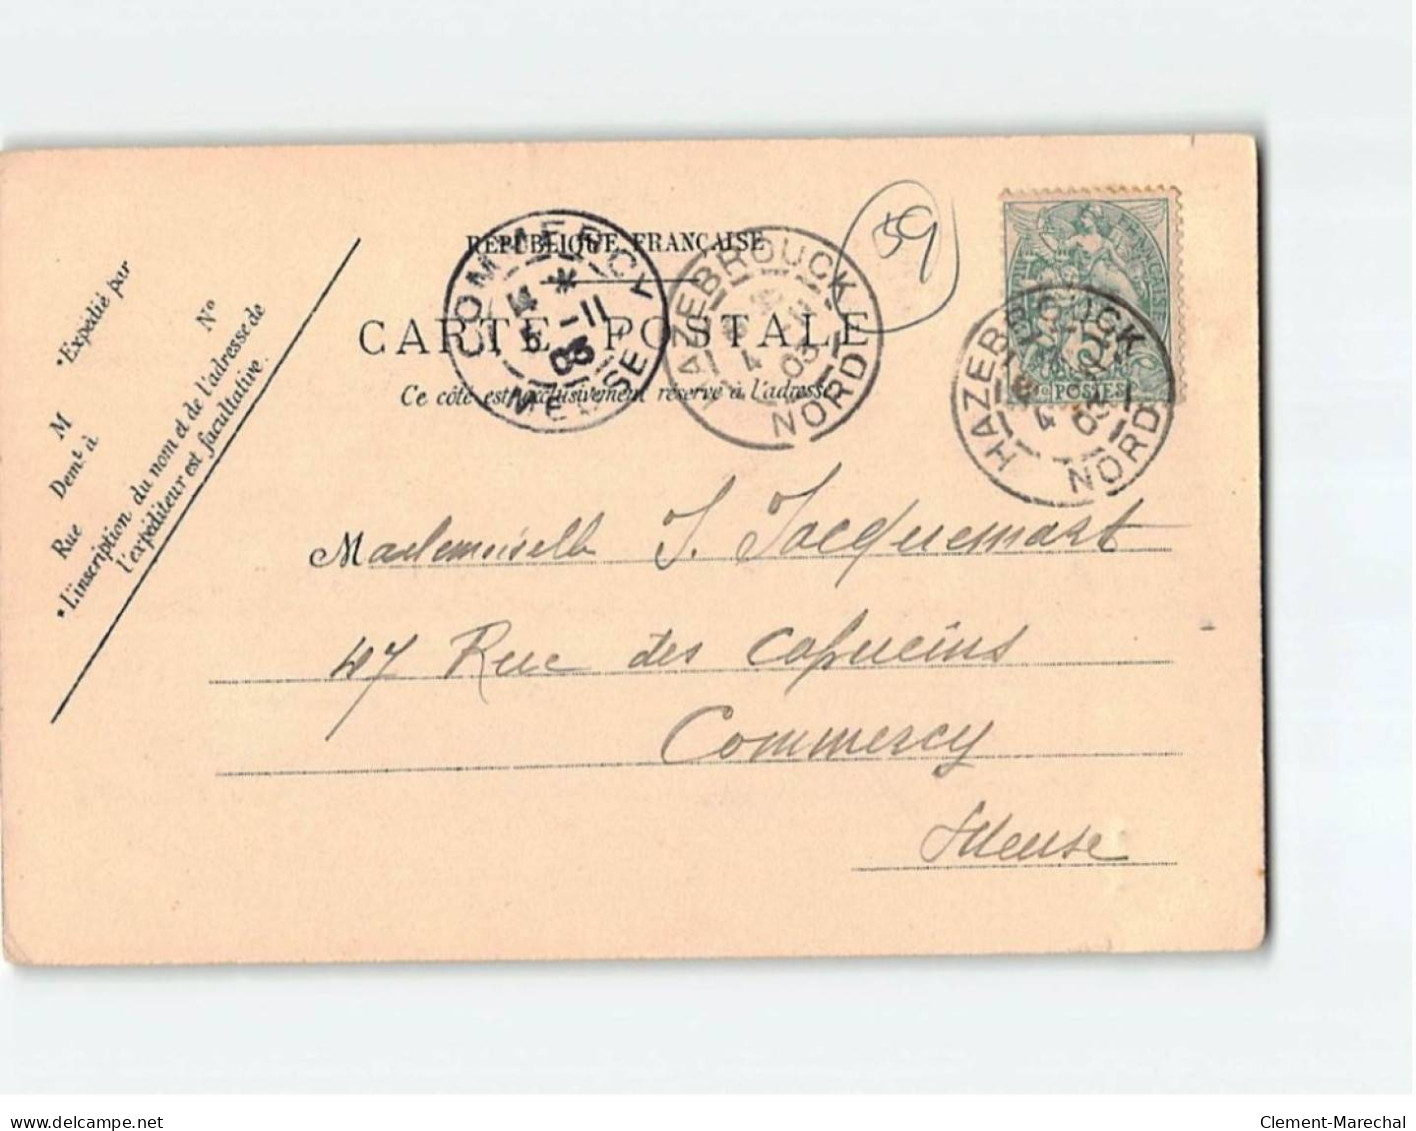 RÉPUBLIQUE FRANÇAISE
CARTE POSTALE
Ce côté est exclusivement réservé à l'adresse.
59
COMMERCY
* 11
03
MEUSE
HAZEBROUCK
4
03
NORD
HAZEBROUCK
4
03
NORD
5
POSTES
*Expédié par
M
Demt à
Rue
N°
*L'inscription du nom et de l'adresse de
l'expéditeur est facultative.
Mademoiselle J. Jacquemart
47 Rue des Capucins
Commercy
Meuse
www.delcampe.net
Clement-Marechal